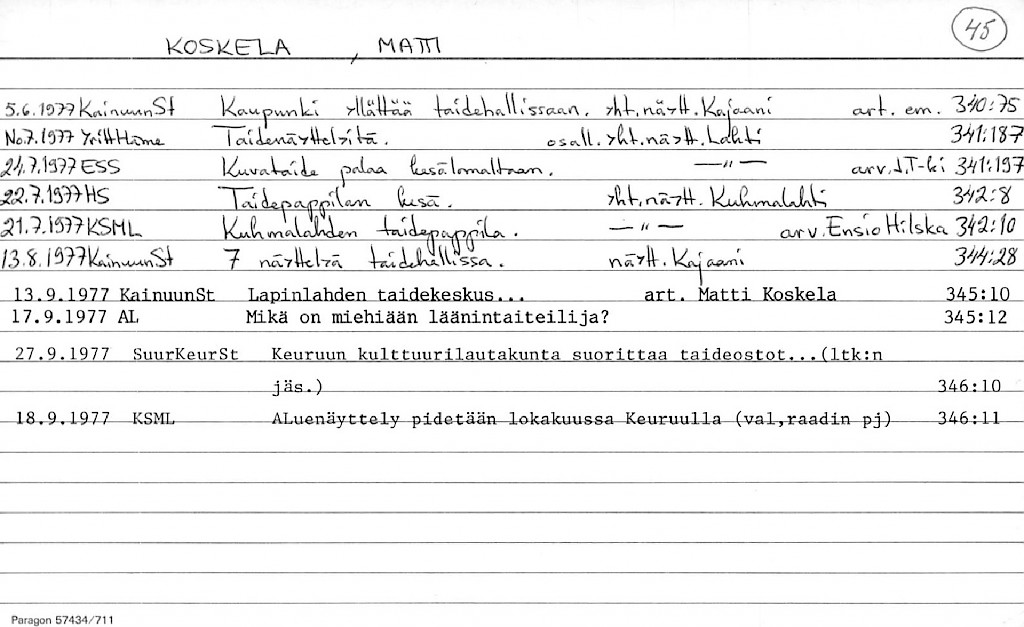 45
KOSKELA , MATTI
5.6.1977 KainuunSt Kaupunki yllättää taidehallissaan. yht.näytt. Kajaani art. em. 340:75
No7.1977 YritHäme Taidenäyttelyitä. osall. yht.näytt. Lahti 341:187
24.7.1977 ESS Kuvataide palaa kesälomaltaan. —"— arv. J.T-ki 341:197
22.7.1977 HS Taidepappilan kesä. yht.näytt. Kuhmalahti 342:8
21.7.1977 KSML Kuhmalahden taidepappila. —"— arv. Ensio Hilska 342:10
13.8.1977 KainuunSt 7 näyttelyä taidehallissa. näytt. Kajaani 344:28
13.9.1977 KainuunSt Lapinlahden taidekeskus... art. Matti Koskela 345:10
17.9.1977 AL Mikä on miehiään läänintaiteilija? 345:12
27.9.1977 SuurKeurSt Keuruun kulttuurilautakunta suorittaa taideostot...(ltk:n
jäs.) 346:10
18.9.1977 KSML ALuenäyttely pidetään lokakuussa Keuruulla (val,raadin pj) 346:11
Paragon 57434/711